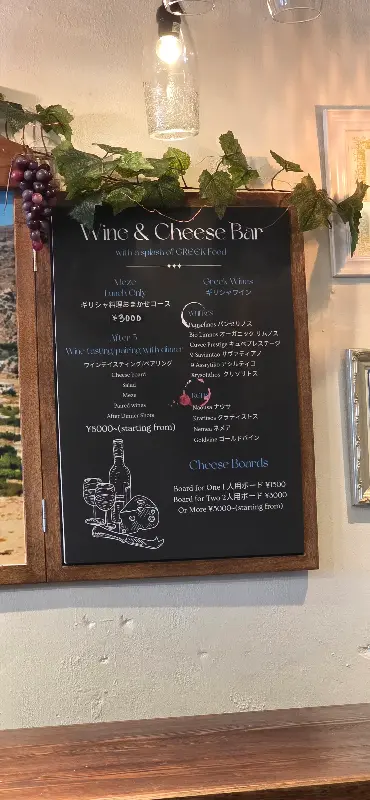 Wine & Cheese Bar
with a splash of GREEK Food
Meze
Lunch Only
ギリシャ料理おまかせコース
¥3000
After 5
Wine tasting/pairing with dinner
ワインテイスティング/ペアリング
Cheese board
Salad
Meze
Paired wines
After Dinner Shots
¥5000~(starting from)
Greek Wines
ギリシャワイン
Whites
Panselinos パンセリノス
Bio Limnos オーガニック リムノス
Cuvee Prestige キュベプレステージ
Savvatiano サヴァティアノ
Assyrtiko アシルティコ
クリソリトス
Naousa ナウサ
Kratistos クラティストス
Nemea ネメア
Goldvine ゴールドバイン
Cheese Boards
Board for One 1人用ボード ¥1500
Board for Two 2人用ボード ¥3000
Or More ¥5000~(starting from)